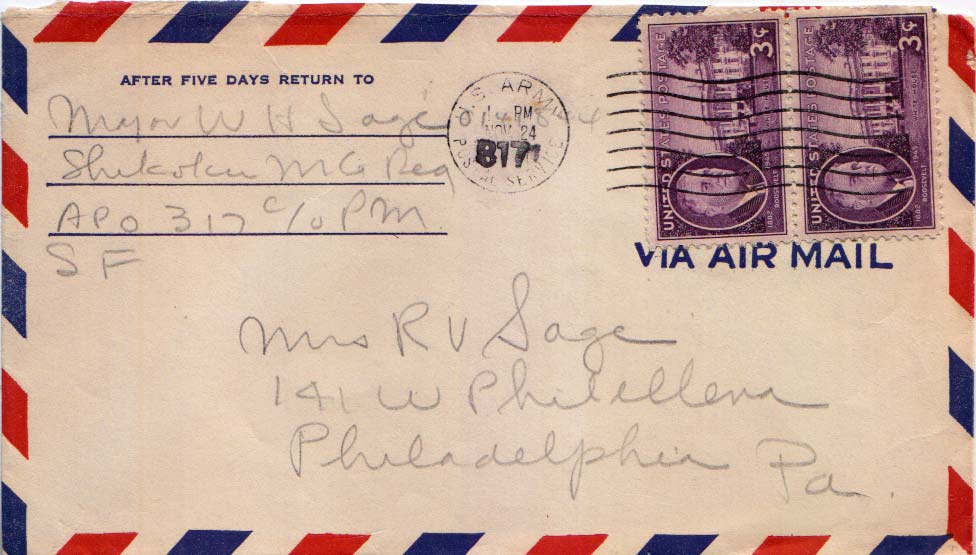 AFTER FIVE DAYS RETURN TO
Major W H Sage
Shikoku M G Reg
APO 317 c/o PM
S F
U.S. ARMY
PM
NOV 24
POSTAL SERVICE
UNITED STATES POSTAGE
3¢
WHITE HOUSE
1882 ROOSEVELT 1945
UNITED STATES POSTAGE
3¢
WHITE HOUSE
1882 ROOSEVELT 1945
VIA AIR MAIL
Mrs R V Sage
141 W Philellena
Philadelphia Pa.